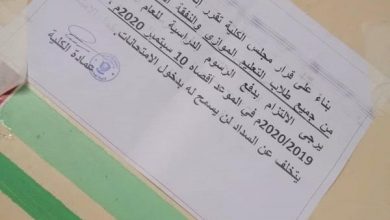 بناء على قرار مجلس الكلية تقرر
من جميع طلاب التعليم الموازي والنفقة
يرجى الالتزام بدفع الرسوم الدراسية للعام
2020/2019م في الموعد اقصاه 10 سبتمبر 2020م،
يتخلف عن السداد لن يسمح له بدخول الامتحانات.
عمادة الكلية